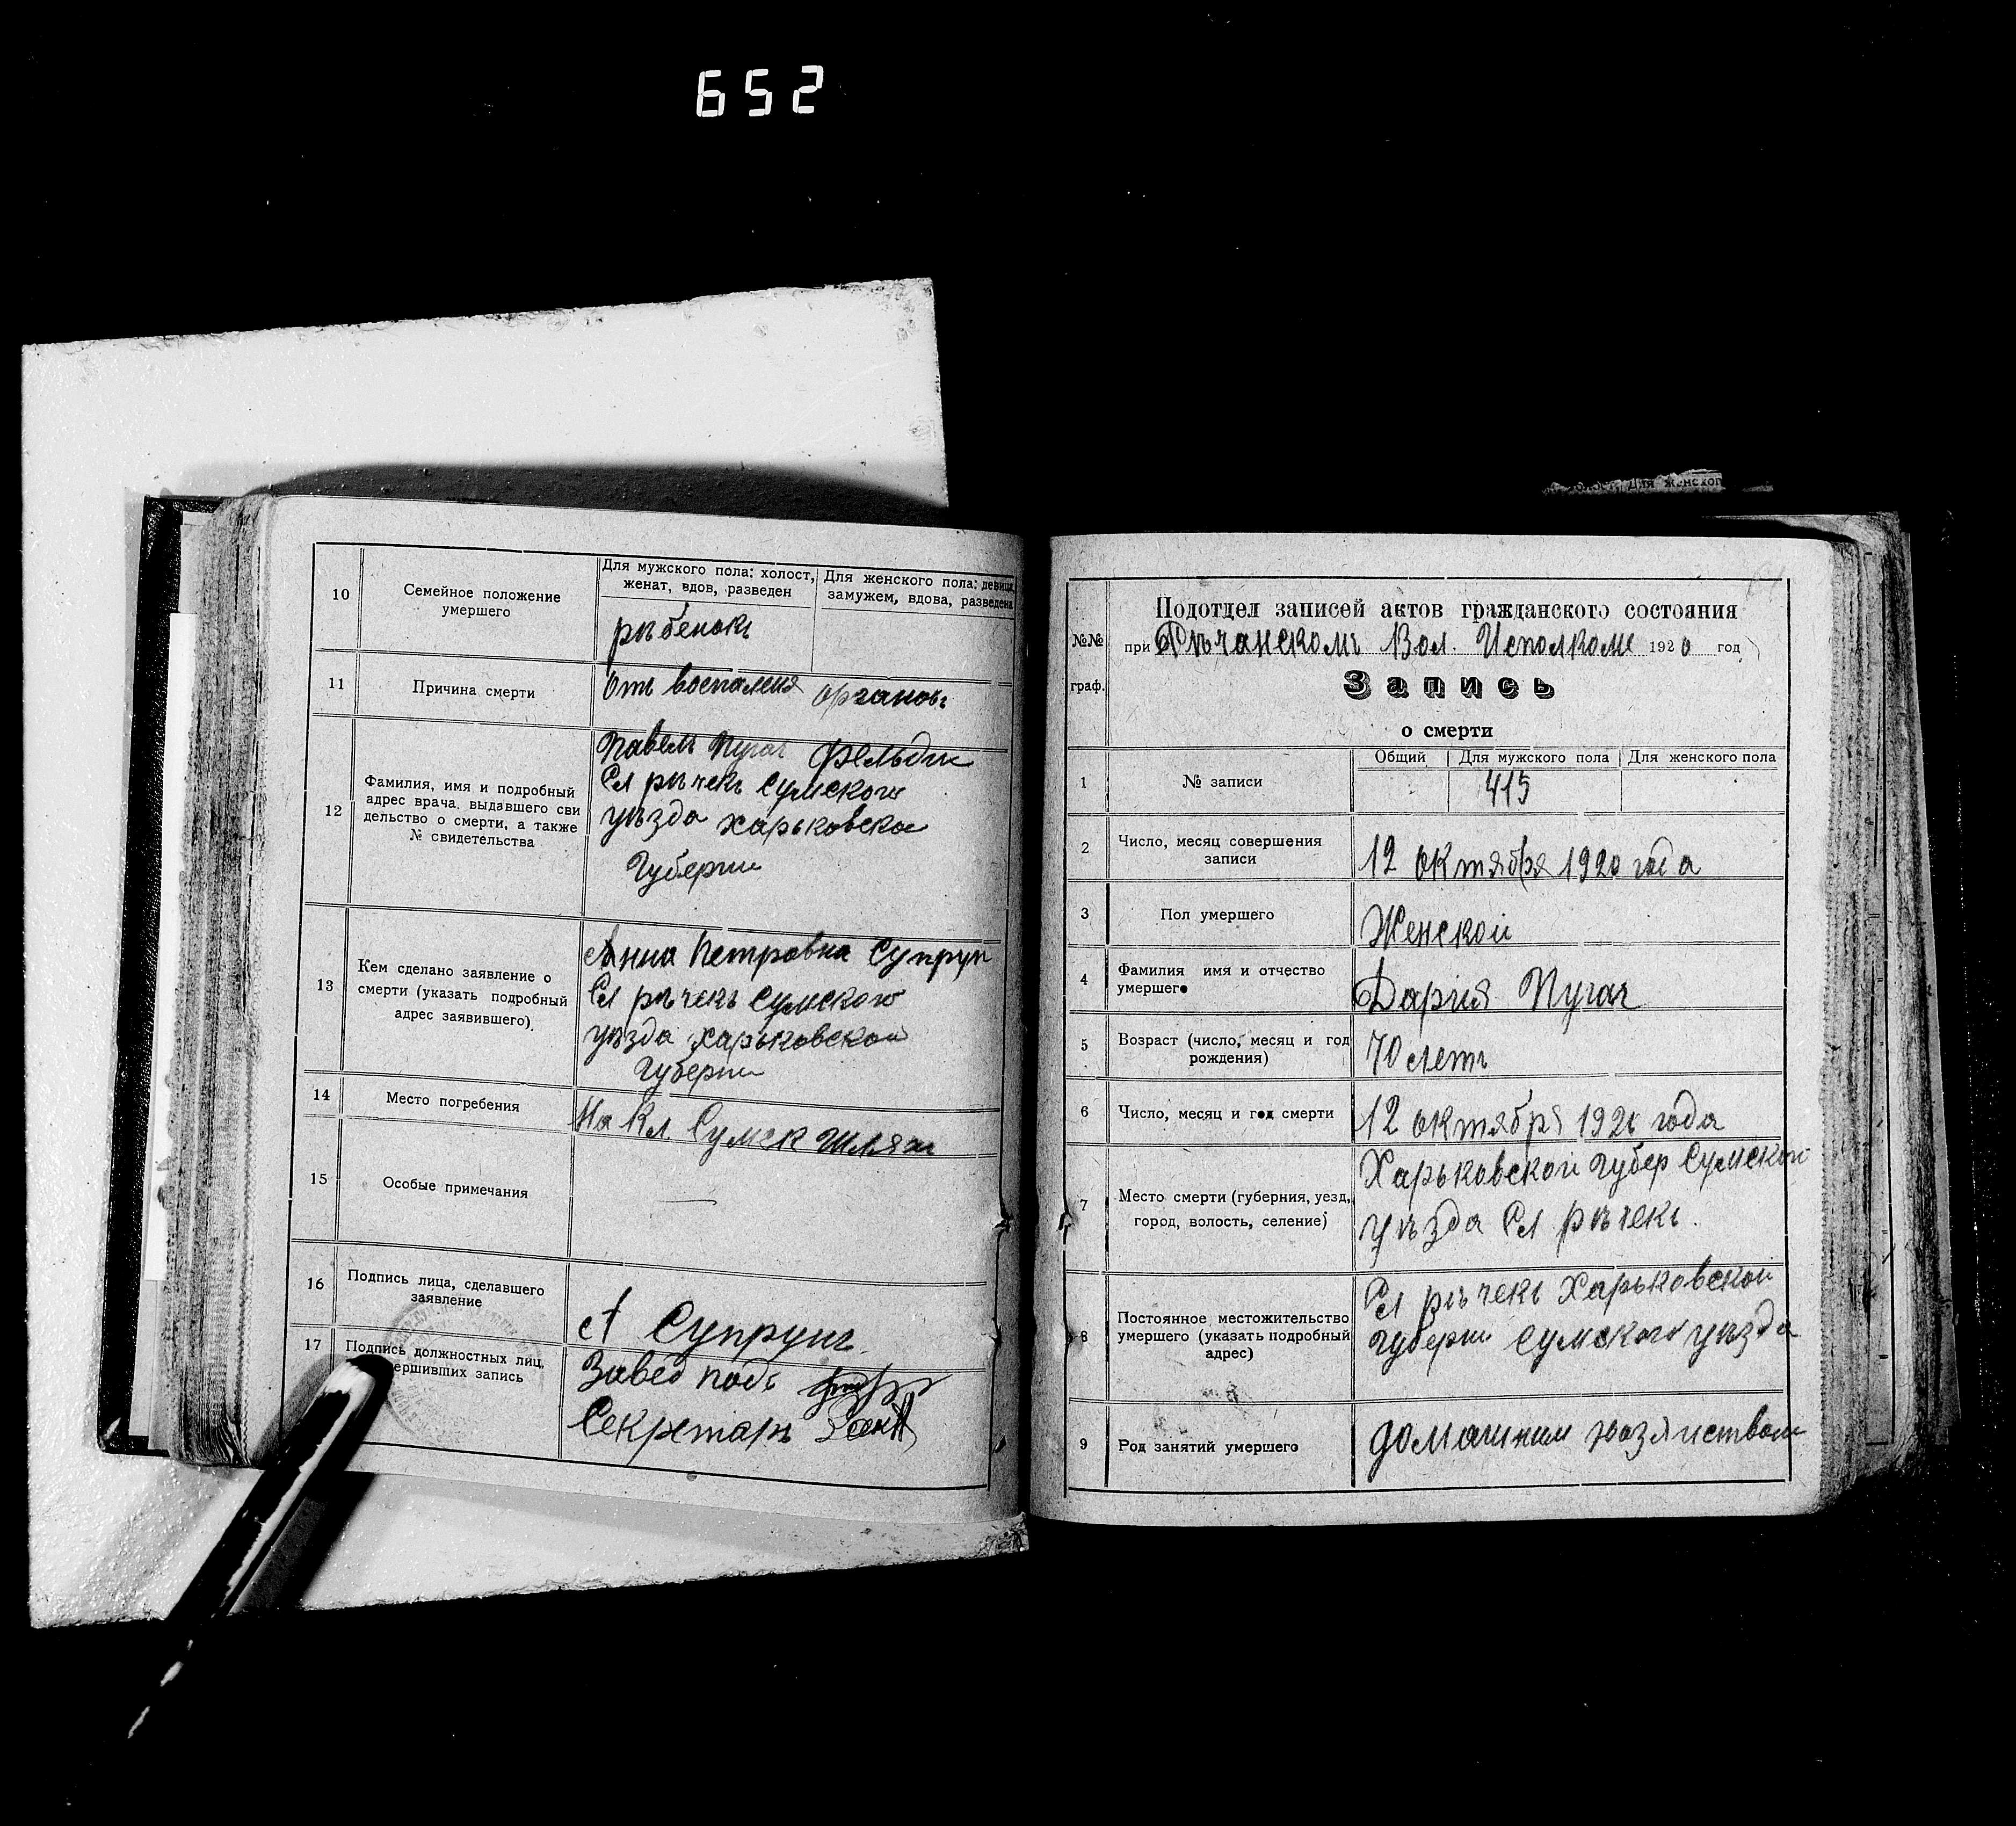 652
10
Семейное положение
умершего
Для мужского пола: холост,
женат, вдов, разведен
Для женского пола: девица
замужем, вдова, разведена
рѣбенокъ
11
Причина смерти
отъ воспаления органовъ
12
Фамилия, имя и подробный
адрес врача, выдавшего сви
дельство о смерти, а также
№ свидетельства
Павелъ Пугач Фельдш
Сл рѣчекъ Сумского
уѣзда Харьковско
Губерни
13
Кем сделано заявление о
смерти (указать подробный
адрес заявившего).
Анна Петровна Супрун
Сл рѣчекъ Сумского
уѣзда Харьковской
Губерни
14
Место погребения
На Кл. Сумск Шлях
15
Особые примечания
16
Подпись лица, сделавшего
заявление
А Супрунъ
17
Подпись должностных лиц,
ершивших запись
Завед подъ
Секретарь
для женског
№№
граф.
Подотдел записей актов гражданского состояния
при Рѣчанскомъ Вол. Исполкоме 1920 год
Запись
о смерти
1
№ записи
Общий
Для мужского пола
Для женского пола
415
2
Число, месяц совершения
записи
12 октября 1920 года
3
Пол умершего
Женской
4
Фамилия имя и отчество
умершего
Дария Пугач
5
Возраст (число, месяц и год
рождения)
70 летъ
6
Число, месяц и год смерти
12 октября 1920 года
7
Место смерти (губерния, уезд,
город, волость, селение)
Харьковской Губер Сумской
уѣзда Сл рѣчекъ.
8
Постоянное местожительство
умершего (указать подробный
адрес)
Сл рѣчекъ Харьковской
Губерни Сумского уѣзда
9
Род занятий умершего
домашним хозяиством